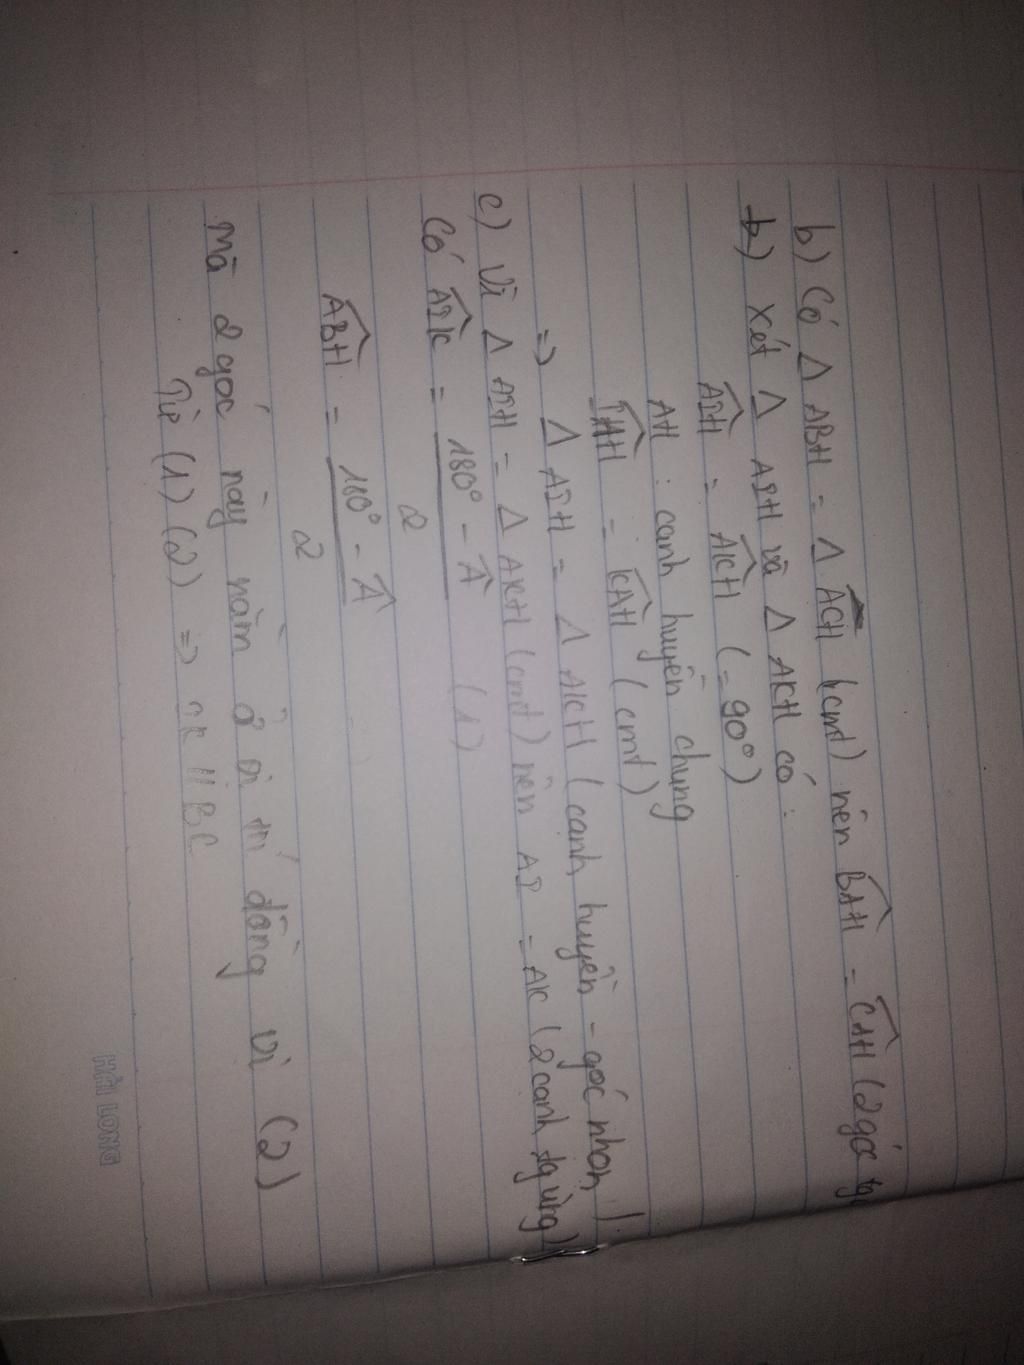 b) Có Δ ABH = Δ ACH (cmt) nên BAH = CAH (2 góc tg
b) xét Δ AIH và Δ AKH có :
AIH = AKH (= 90°)
AH : cạnh huyền chung
IAH = KAH (cmt)
=> Δ AIH = Δ AKH (cạnh huyền - góc nhọn)
c) Vì Δ AIH = Δ AKH (cmt) nên AI = AK (2 cạnh tg ứng)
Có AIK = 180° - A / 2 (1)
ABH = 180° - A / 2
mà 2 góc này nằm ở vị trí đồng vị (2)
Từ (1) (2) => IK // BC
HẢI LONG